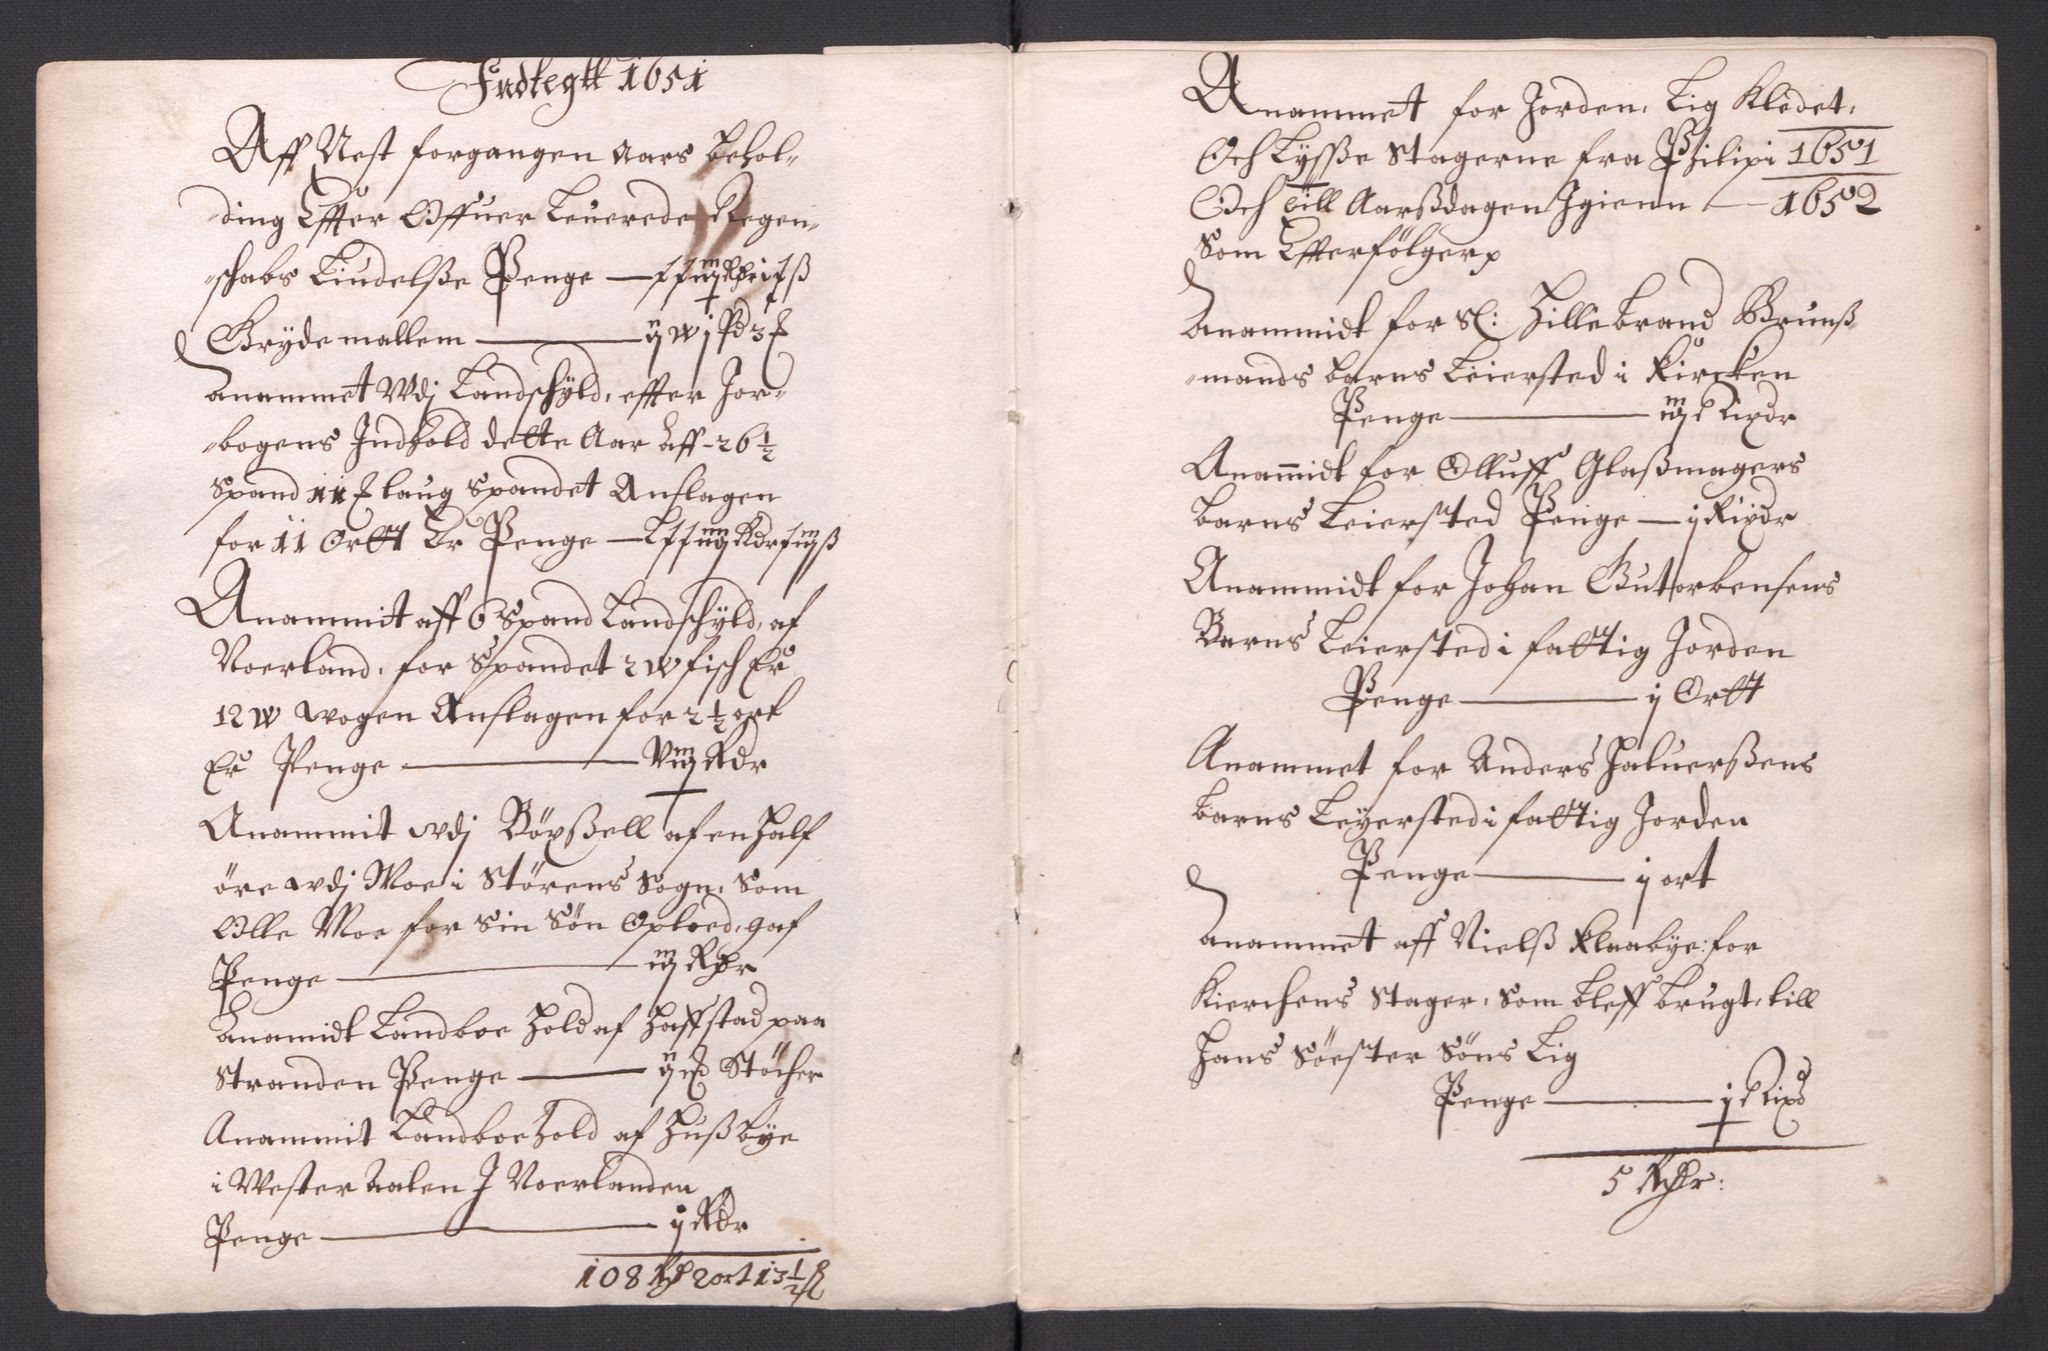 Indtegtt 1651
Aff Nest forgangen Aars behol-
ding Effter Offuer Leuerede Regen-
schabs Liudelsße Penge
Grydemallem
Anammet Wdj Landschyld, effter Jor-
bogens Indhold dette Aar Aff - 26 1/2
Spand 11 laug Spandet Anslagen
for 11 Ortt Er Penge
Anammit aff 6 Spand Landschyld, af
Noerland, for Spandet 2 w fisch Er
12 w wogen Anslagen for 2 1/2 ort
Er Penge Rdr
Anammit wdj Böxßell af en Half
öre wdj Moe i Störens Sogn, Som
Olle Moe for Sin Sön Oploed, gaf
Penge iij Rdr
Anamidt Landboe Hold af Haffstad paa
Stranden Penge Stöcher
Anammit Landboe Hold af Hußbÿe
i Wester Aalen I Noerlanden
Penge ij Rdr
108 Rd 2 ort 13 1/2 ß
Anammet for Jorden, Lig Klèdet,
Och Lÿsße Stagerne fra Philipi 1651
Och till Aarßdagen Igienn — 1652
Som Effterfölger
Anammidt for Sl: Hillebrand Brunß-
mands barns Leiersted i Kircken
Penge iij Rixdr
Anamidt for Olluff Glaßmagers
barns Leiersted Penge — ij Rixdr
Anammidt for Johan Gutorbensens
Barns Leiersted i fattig Jorden
Penge ij Ortt
Anammet for Anders Haluerßens
barns Leÿersted i fattig Jorden
Penge ij ort
Anammet aff Nielß Klaabÿe: for
Kierchens Stager, Som bleff brugt, till
Hans Söester Söns Lig
Penge j Rixd
5 Rdr: